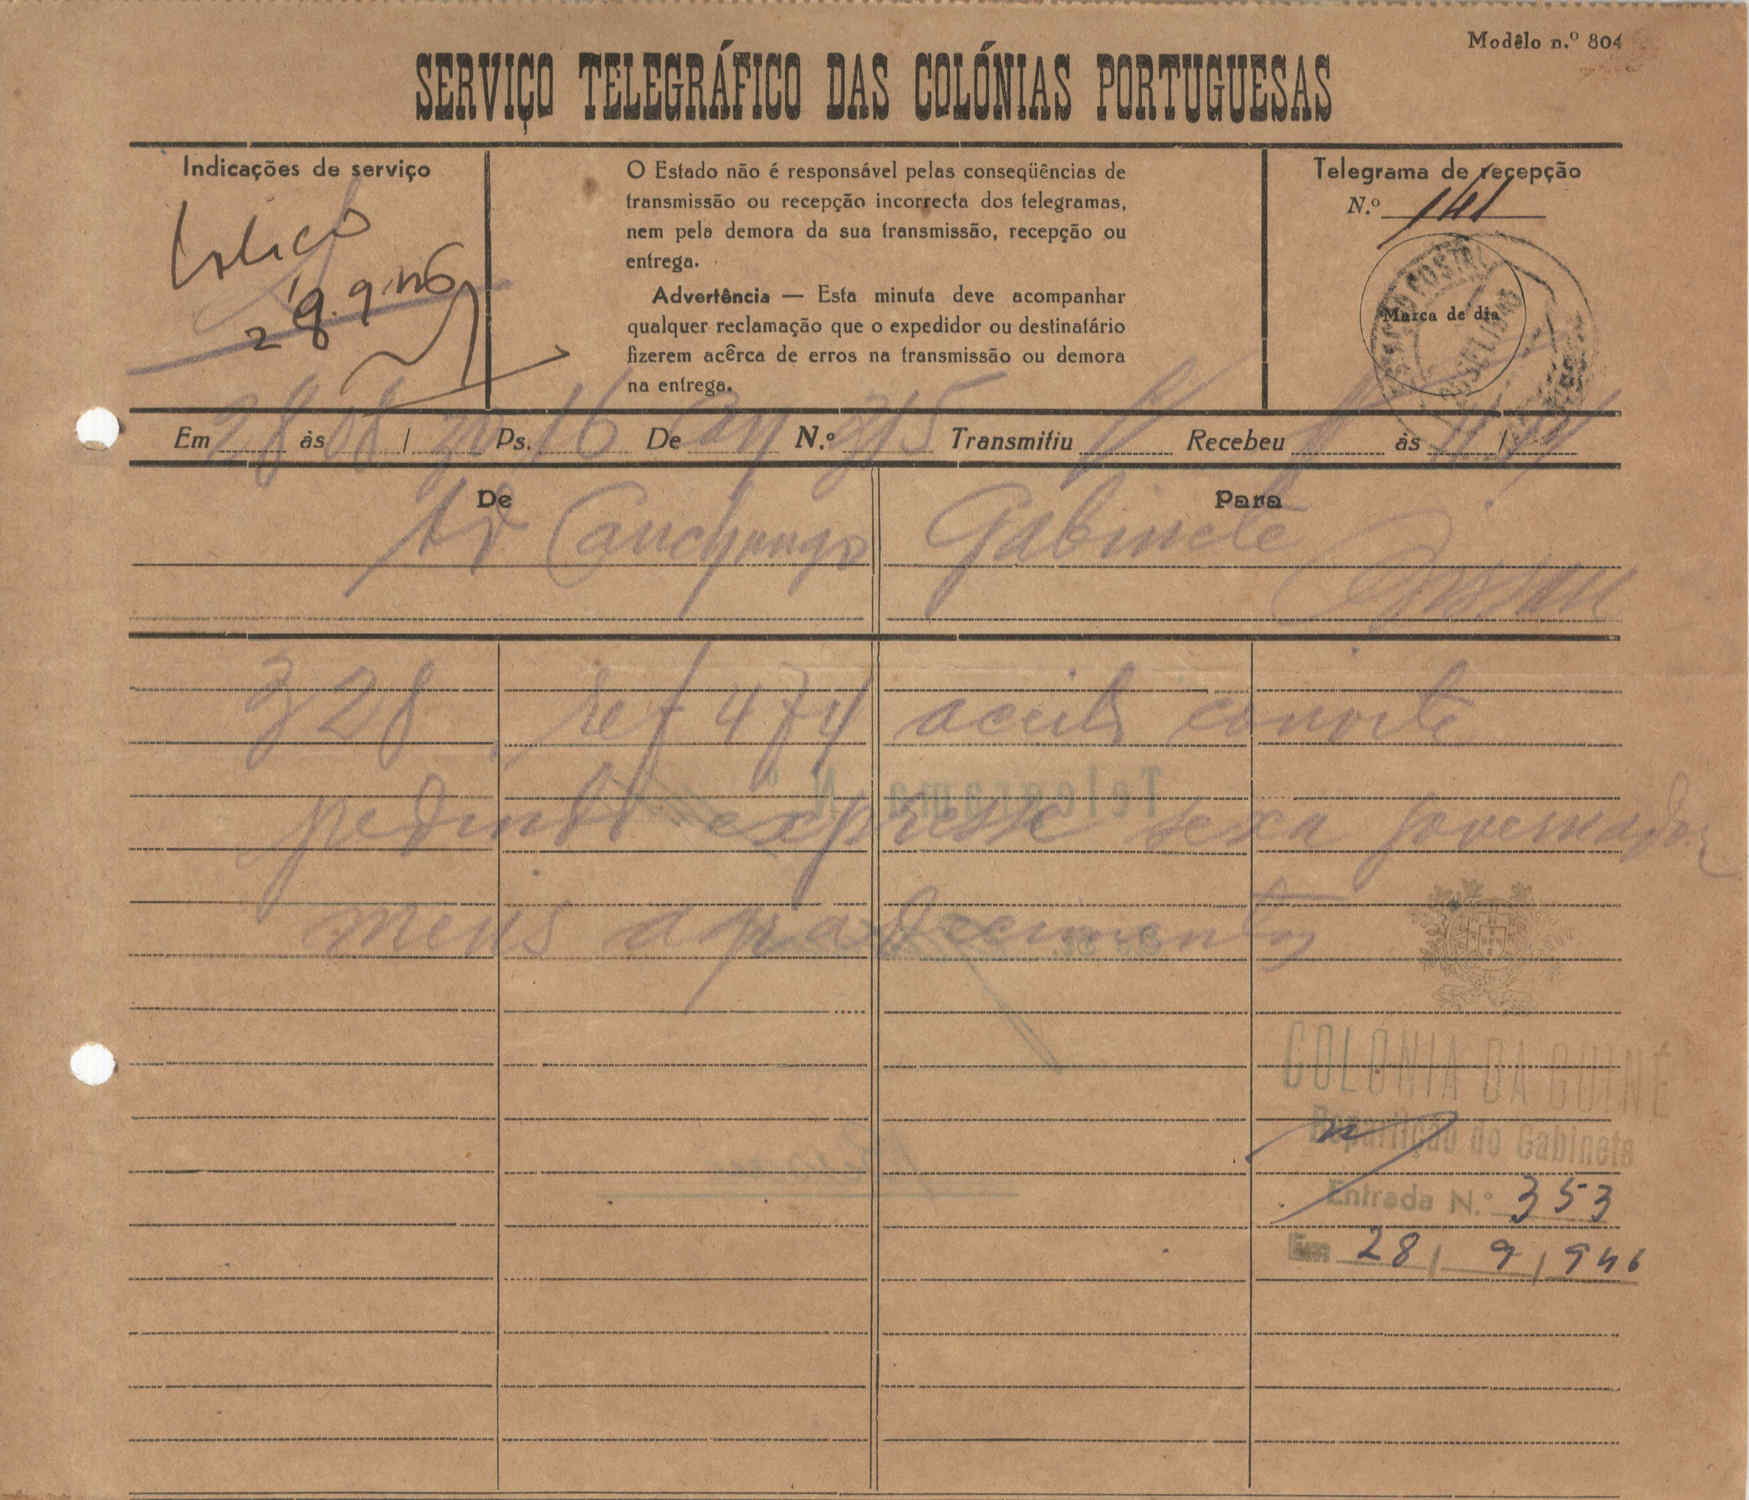 Modêlo n.º 804
SERVIÇO TELEGRÁFICO DAS COLÓNIAS PORTUGUESAS
Indicações de serviço
28.9.946
O Estado não é responsável pelas conseqüências de
transmissão ou recepção incorrecta dos telegramas,
nem pela demora da sua transmissão, recepção ou
entrega.
Advertência — Esta minuta deve acompanhar
qualquer reclamação que o expedidor ou destinatário
fizerem acêrca de erros na transmissão ou demora
na entrega.
Telegrama de recepção
N.º 141
Marca de dia
Em 28 às 08 / 30 Ps. 16 De Can N.º 315 Transmitiu Recebeu às /
De
Ad Canchungo
Para
Gabinete
Bissau
328 ref 474 aceito convite
pedindo expresse sexa governador
meus agradecimentos
COLONIA DA GUINÉ
Repartição do Gabinete
Entrada N.º 353
Em 28 / 9 / 946